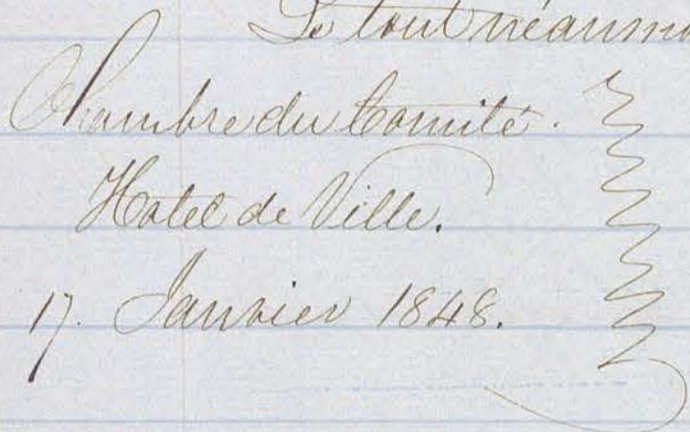 Le tout néanmoi
Chambre du Comité.
Hotel de Ville.
17. Janvier 1848.